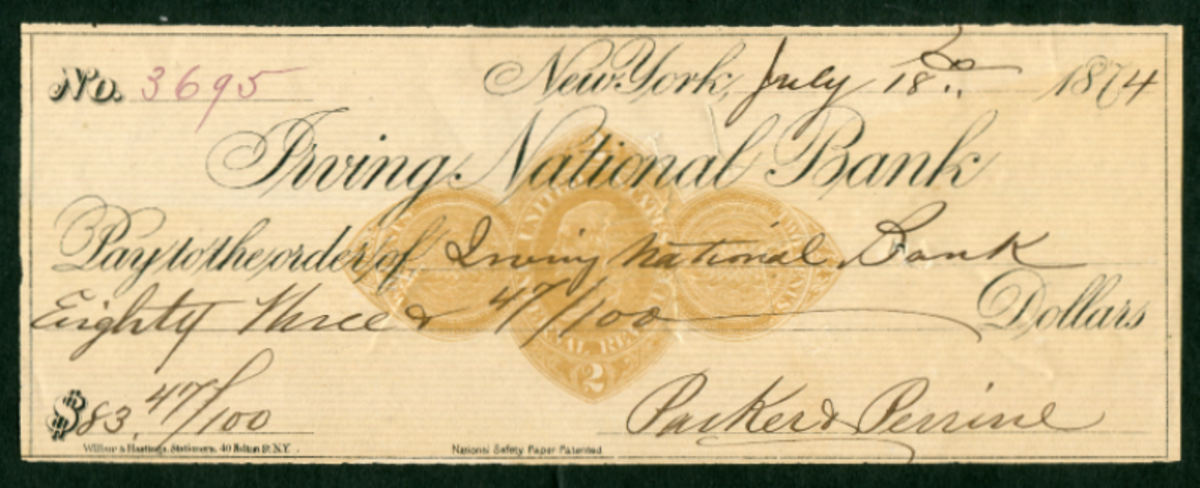 No. 3695 New York, July 18 1874
Irving National Bank
Pay to the order of Irving National Bank
Eighty Three & 47/100 Dollars
$83,47/100 Parker & Perrine
Wilbur & Hastings, Stationers, 40 Fulton St. N.Y. National Safety Paper Patented
UNITED STATES
INTERNAL REVENUE
2